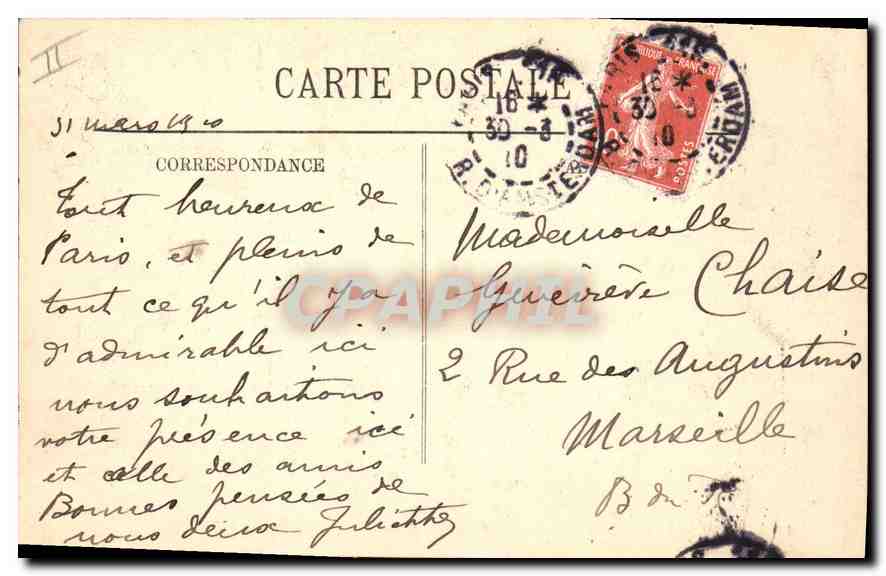 II
CARTE POSTALE
31 mars 1910
CORRESPONDANCE
Tout heureux de
Paris, et pleins de
tout ce qu'il y a
d'admirable ici
nous souhaitions
votre présence ici
et celle des amis
Bonnes pensées de
nous deux Juliette
PARIS
16 *
30 - 3
10
R. D'AMSTERDAM
RÉPUBLIQUE FRANÇAISE
POSTES
PARIS
16 *
30 - 3
10
Mademoiselle
Geneviève Chaise
2 Rue des Augustins
Marseille
B du R
CPAPHIL